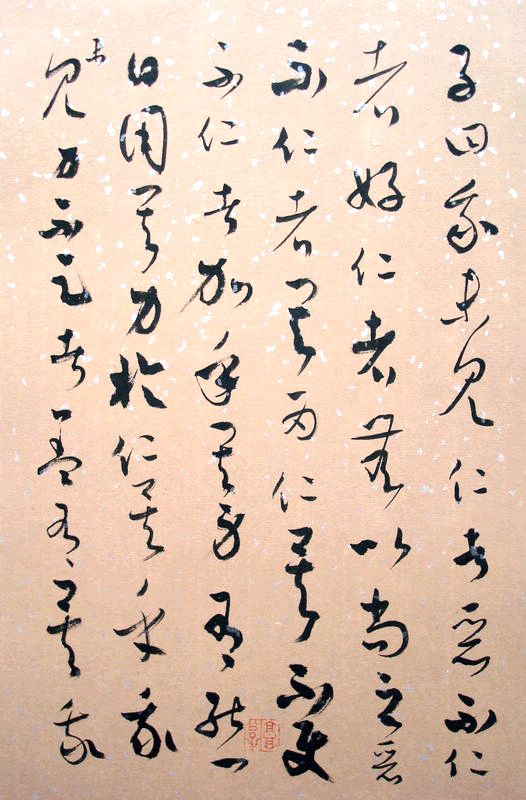 子曰我未見仁者惡不仁
者好仁者無以尚之惡
不仁者其為仁矣不使
不仁者加乎其身有能一
日用其力於仁矣乎我
未見力不足者蓋有之矣我